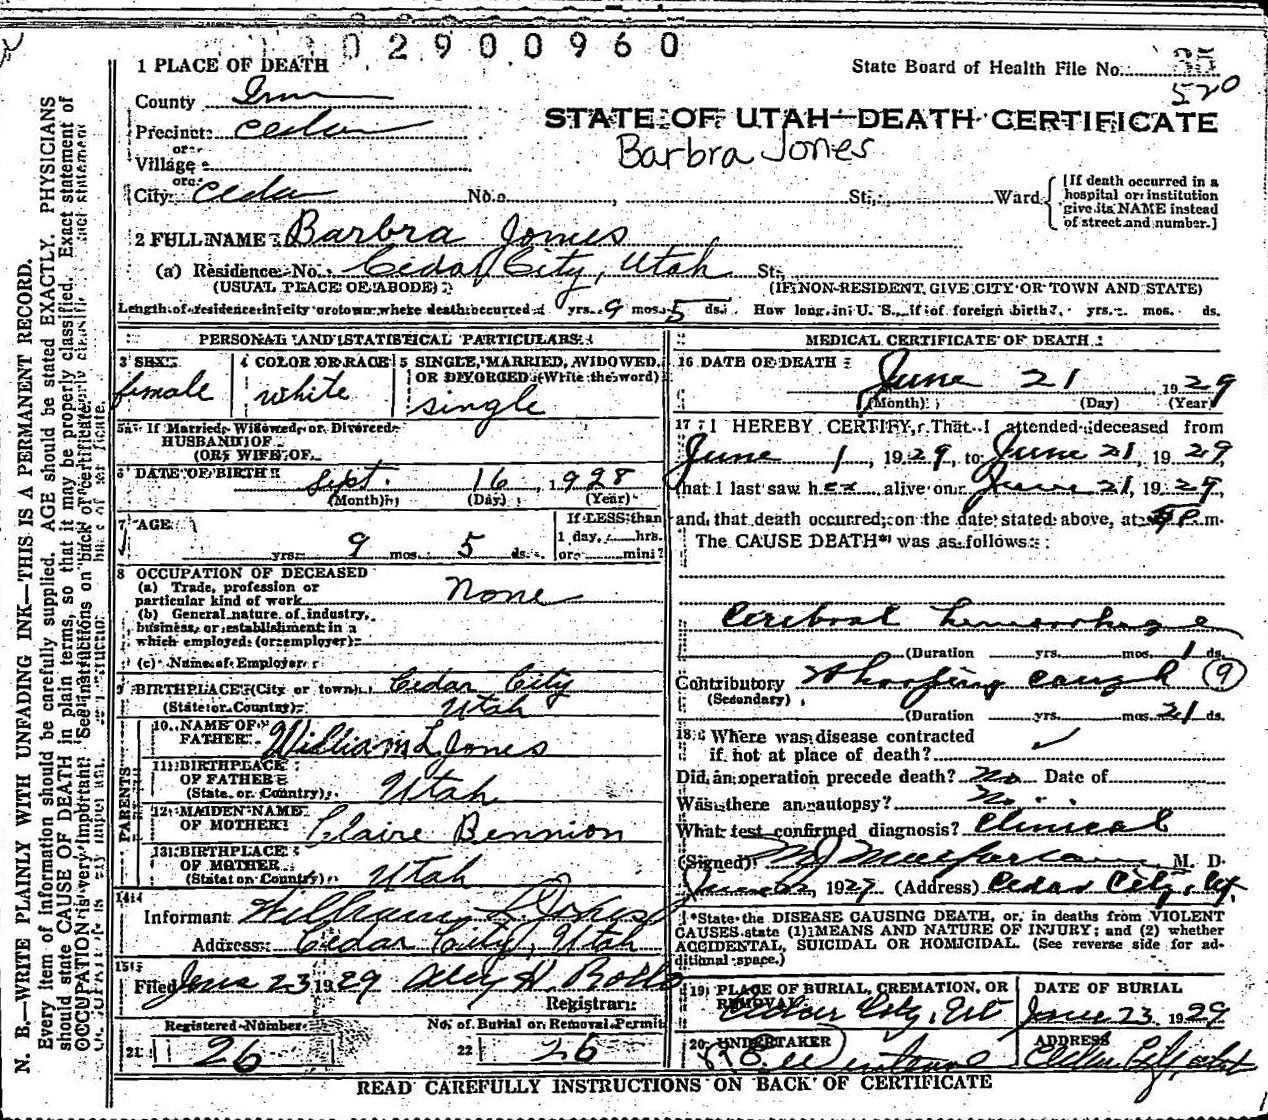 02900960
1 PLACE OF DEATH
State Board of Health File No. 35
520
County Iron
STATE OF UTAH—DEATH CERTIFICATE
Precinct Cedar
Barbra Jones
or
Village
or
City Cedar No. St., Ward
[If death occurred in a
hospital or institution
give its NAME instead
of street and number.]
2 FULL NAME Barbra Jones
(a) Residence No. Cedar City, Utah St.
(USUAL PEACE OF ABODE) (IF NON-RESIDENT, GIVE CITY OR TOWN AND STATE)
Length of residence in city or town where death occurred yrs. 9 mos. 5 ds. How long in U. S., if of foreign birth? yrs. mos. ds.
PERSONAL AND STATISTICAL PARTICULARS
3 SEX
female
4 COLOR OR RACE
white
5 SINGLE, MARRIED, WIDOWED,
OR DIVORCED (Write the word)
single
5a If Married, Widowed, or Divorced
HUSBAND OF
(OR) WIFE OF
6 DATE OF BIRTH
Sept. 16, 1928
(Month) (Day) (Year)
7 AGE
yrs. 9 mos. 5 ds.
If LESS than
1 day, hrs.
or min?
8 OCCUPATION OF DECEASED
(a) Trade, profession or
particular kind of work None
(b) General nature of industry,
business, or establishment in
which employed (or employer)
(c) Name of Employer
9 BIRTHPLACE (City or town) Cedar City
(State or Country) Utah
PARENTS
10 NAME OF
FATHER William L Jones
11 BIRTHPLACE
OF FATHER
(State or Country) Utah
12 MAIDEN NAME
OF MOTHER Claire Bennion
13 BIRTHPLACE
OF MOTHER
(State or Country) Utah
14
Informant William L Jones
Address Cedar City, Utah
15
Filed June 23 1929
Registrar
Registered Number No. of Burial or Removal Permit
21 26 22 26
MEDICAL CERTIFICATE OF DEATH
16 DATE OF DEATH
June 21 1929
(Month) (Day) (Year)
17 I HEREBY CERTIFY, That I attended deceased from
June 1, 1929, to June 21, 1929,
that I last saw her alive on June 21, 1929,
and that death occurred, on the date stated above, at P.m.
The CAUSE DEATH* was as follows:
Cerebral hemorrhage
(Duration yrs. mos. 1 ds.
Contributory Whooping cough 9
(Secondary)
(Duration yrs. mos. 21 ds.
18 Where was disease contracted
if not at place of death?
Did an operation precede death? No Date of
Was there an autopsy? No.
What test confirmed diagnosis? Clinical
(Signed) M J Macfarlane, M. D.
June 22, 1929 (Address) Cedar City, Ut.
*State the DISEASE CAUSING DEATH, or, in deaths from VIOLENT
CAUSES state (1) MEANS AND NATURE OF INJURY; and (2) whether
ACCIDENTAL, SUICIDAL OR HOMICIDAL. (See reverse side for ad-
ditional space.)
19 PLACE OF BURIAL, CREMATION, OR
REMOVAL
Cedar City, Ut
DATE OF BURIAL
June 23, 1929
20 UNDERTAKER
ADDRESS
Cedar City, Utah
READ CAREFULLY INSTRUCTIONS ON BACK OF CERTIFICATE
N. B.—WRITE PLAINLY WITH UNFADING INK—THIS IS A PERMANENT RECORD.
Every item of information should be carefully supplied. AGE should be stated EXACTLY. PHYSICIANS
should state CAUSE OF DEATH in plain terms, so that it may be properly classified. Exact statement of
OCCUPATION is very important. See instructions on back of certificate.